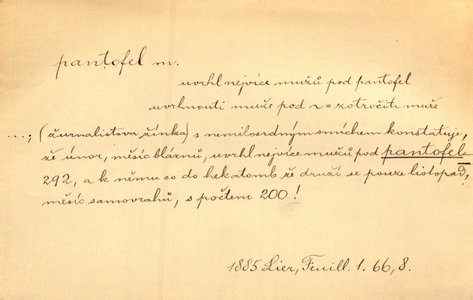 pantofel m.
uvrhl nejvíce mužů pod pantofel
uvrhnouti muže pod p = zotročiti muže
..., (žurnalistova řínka) s nemilosrdným smíchem konstatuje,
že únor, měsíc bláznů, uvrhl nejvíce mužů pod pantofel –
292, a k němu co do hekatomb že druží se pouze listopad,
měsíc samovrahů, s počtem 200!
1885 Lier, Feuill. 1. 66, 8.